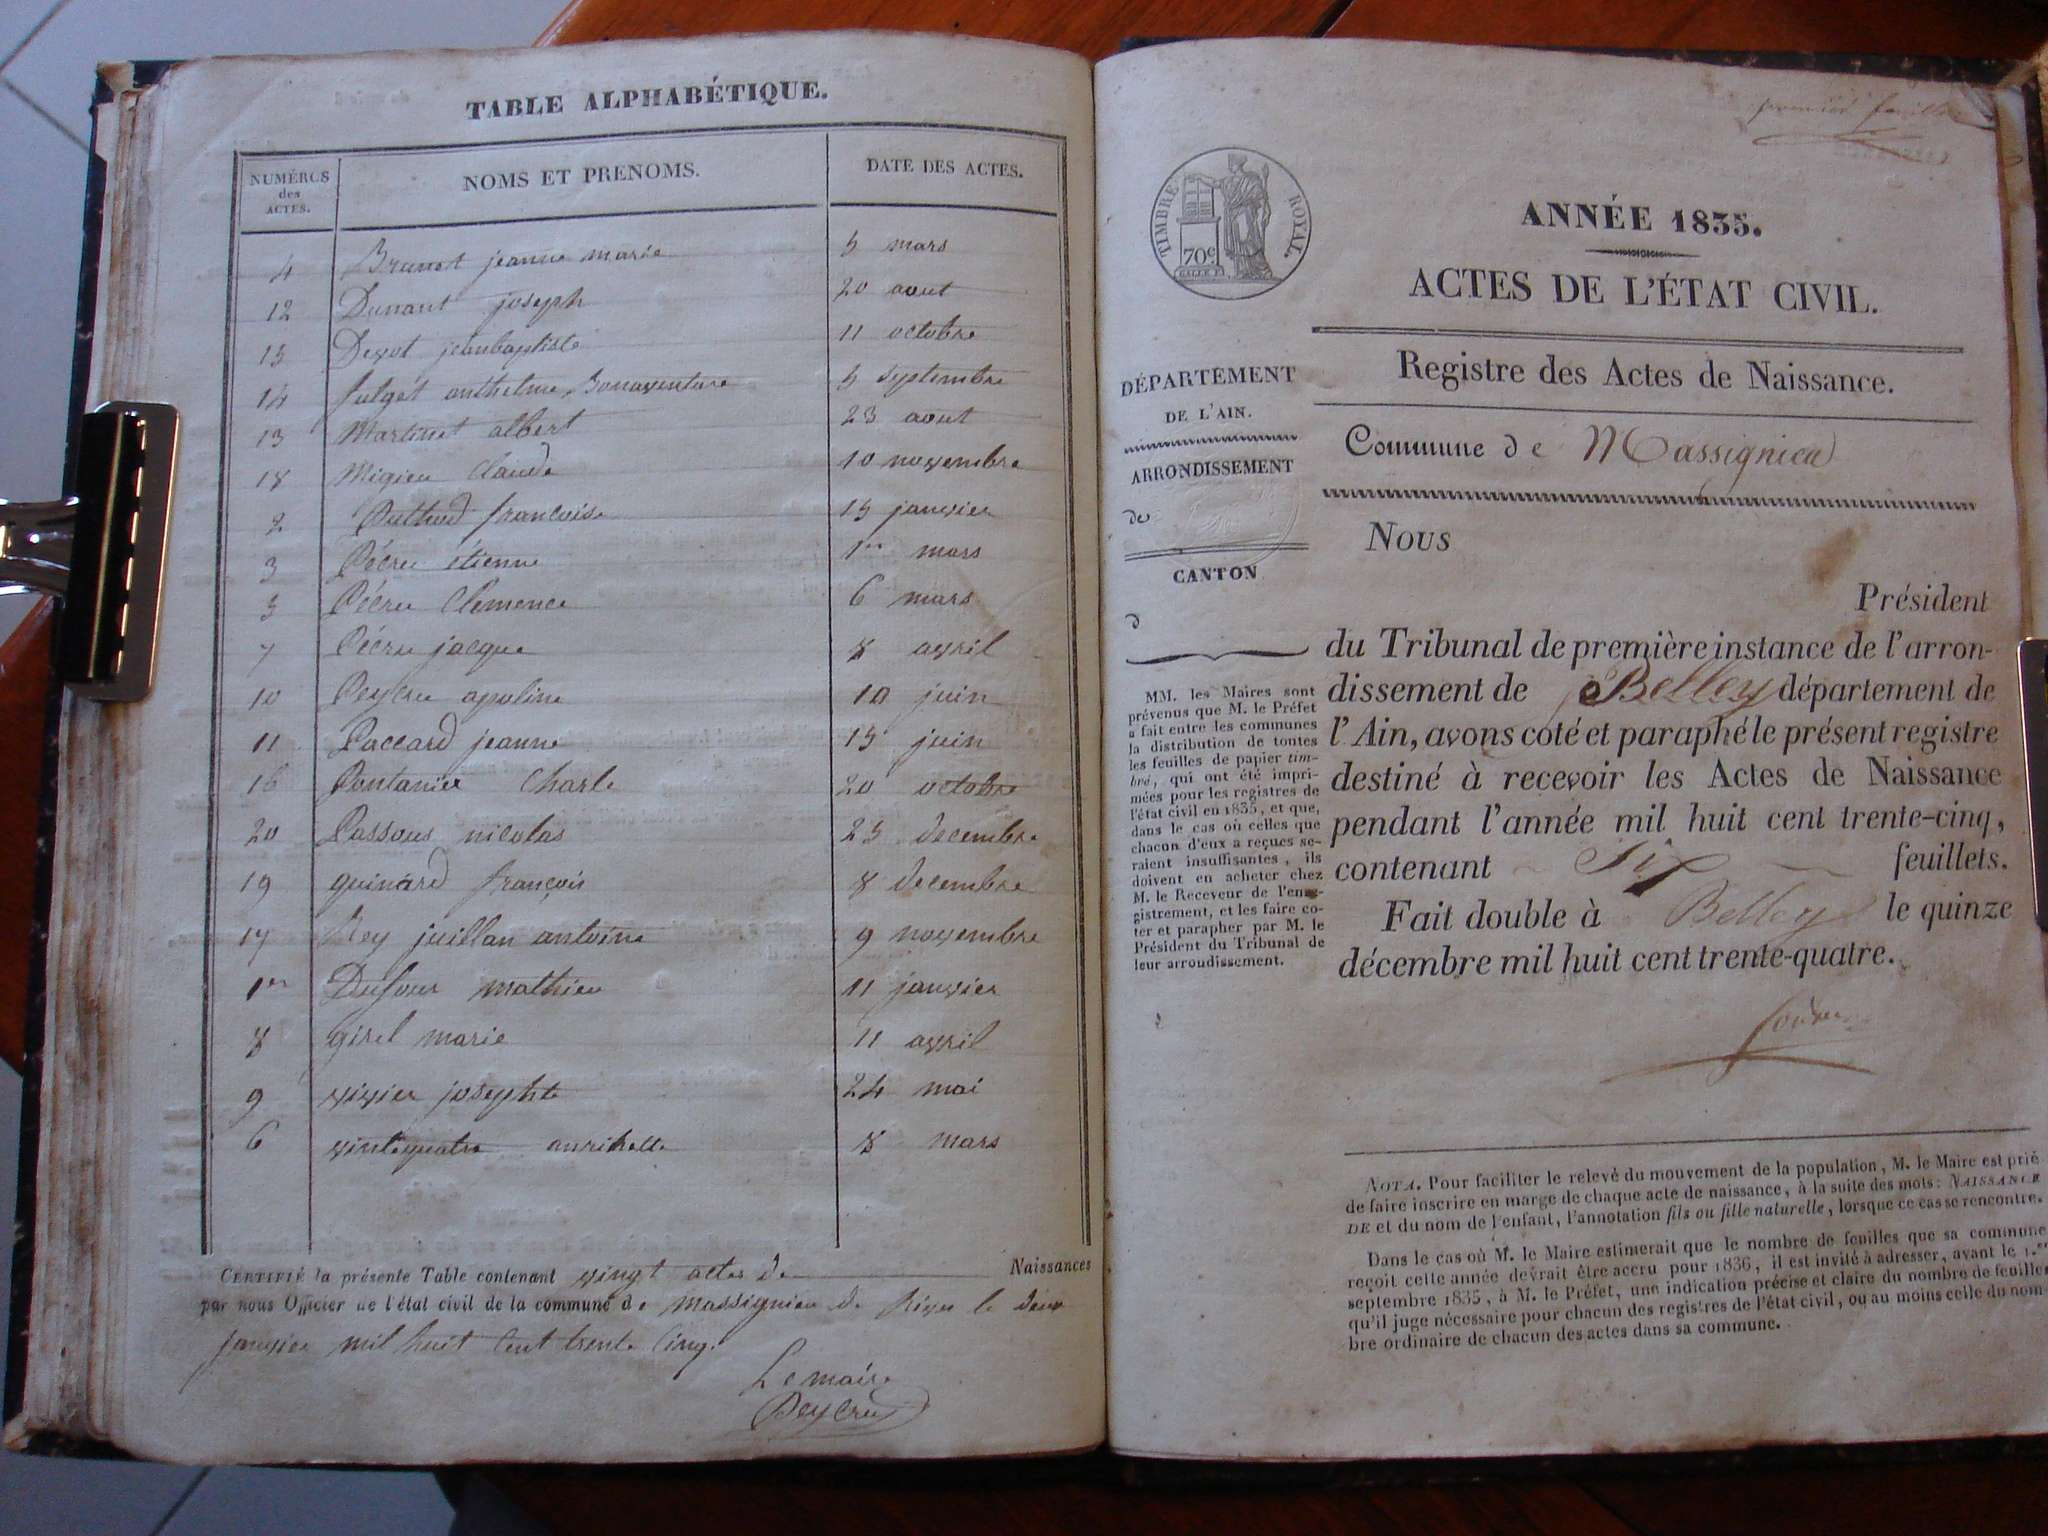 TABLE ALPHABÉTIQUE.
NUMÉROS des ACTES. NOMS ET PRENOMS. DATE DES ACTES.
4 Brunet jeanne marie 5 mars
12 Dunant joseph 20 aout
15 Devot jeanbaptiste 11 octobre
14 anthelme Bonaventure 5 septembre
13 Martinet albert 23 aout
18 Migieu Claude 10 novembre
2 françoise 15 janvier
3 Pécru étienne 1er mars
5 Pécru Clemence 6 mars
7 Pécru jacque 8 avril
10 Peycru apoline 10 juin
11 Paccard jeanne 15 juin
16 Pontanier Charle 20 octobre
20 Passous nicolas 25 decembre
19 quinard françois 8 decembre
17 Rey juillan antoine 9 novembre
1er Dufour mathieu 11 janvier
8 girel marie 11 avril
9 vivier josephte 24 mai
6 vintequatre 8 mars
CERTIFIÉ la présente Table contenant vingt actes de Naissances
par nous Officier de l'état civil de la commune de massignieu de Rives le deux
janvier mil huit Cent trente Cinq.
Le maire
Peycru
premier feuillet
TIMBRE ROYAL.
70c
ANNÉE 1835.
ACTES DE L'ÉTAT CIVIL.
Registre des Actes de Naissance.
DÉPARTEMENT
DE L'AIN.
ARRONDISSEMENT
de
CANTON
d
Commune de Massignieu
Nous
Président
du Tribunal de première instance de l'arron-
dissement de Belley département de
l'Ain, avons coté et paraphé le présent registre
destiné à recevoir les Actes de Naissance
pendant l'année mil huit cent trente-cinq,
contenant Six feuillets.
Fait double à Belley le quinze
décembre mil huit cent trente-quatre.
MM. les Maires sont
prévenus que M. le Préfet
a fait entre les communes
la distribution de toutes
les feuilles de papier tim-
bré, qui ont été impri-
mées pour les registres de
l'état civil en 1835, et que,
dans le cas où celles que
chacun d'eux a reçues se-
raient insuffisantes, ils
doivent en acheter chez
M. le Receveur de l'enre-
gistrement, et les faire co-
ter et parapher par M. le
Président du Tribunal de
leur arroudissement.
NOTA. Pour faciliter le relevé du mouvement de la population, M. le Maire est prié
de faire inscrire en marge de chaque acte de naissance, à la suite des mots: NAISSANCE
DE et du nom de l'enfant, l'annotation fils ou fille naturelle, lorsque ce cas se rencontre.
Dans le cas où M. le Maire estimerait que le nombre de feuilles que sa commune
reçoit cette année devrait être accru pour 1836, il est invité à adresser, avant le 1.er
septembre 1835, à M. le Préfet, une indication précise et claire du nombre de feuilles
qu'il juge nécessaire pour chacun des registres de l'état civil, ou au moins celle du nom-
bre ordinaire de chacun des actes dans sa commune.